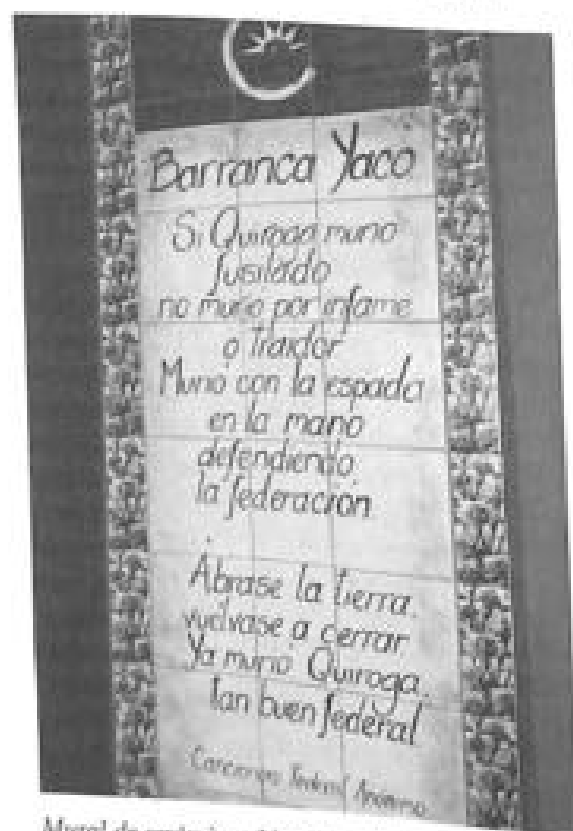 Barranca Yaco
Si Quiroga murio
fusilado
no murio por infame
o Traidor
Murio con la espada
en la mano
defendiendo
la federación
Ábrase la tierra.
vuelvase a cerrar
Ya murio Quiroga.
Tan buen federal
Cancionero Federal Anónimo
Mural de